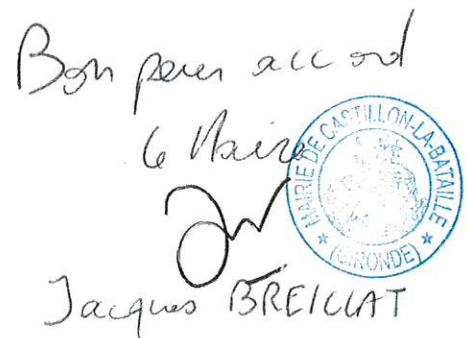 Bon pour accord
Le Maire
MAIRIE DE CASTILLON-LA-BATAILLE
★ (GIRONDE) ★
Jacques BREILLAT